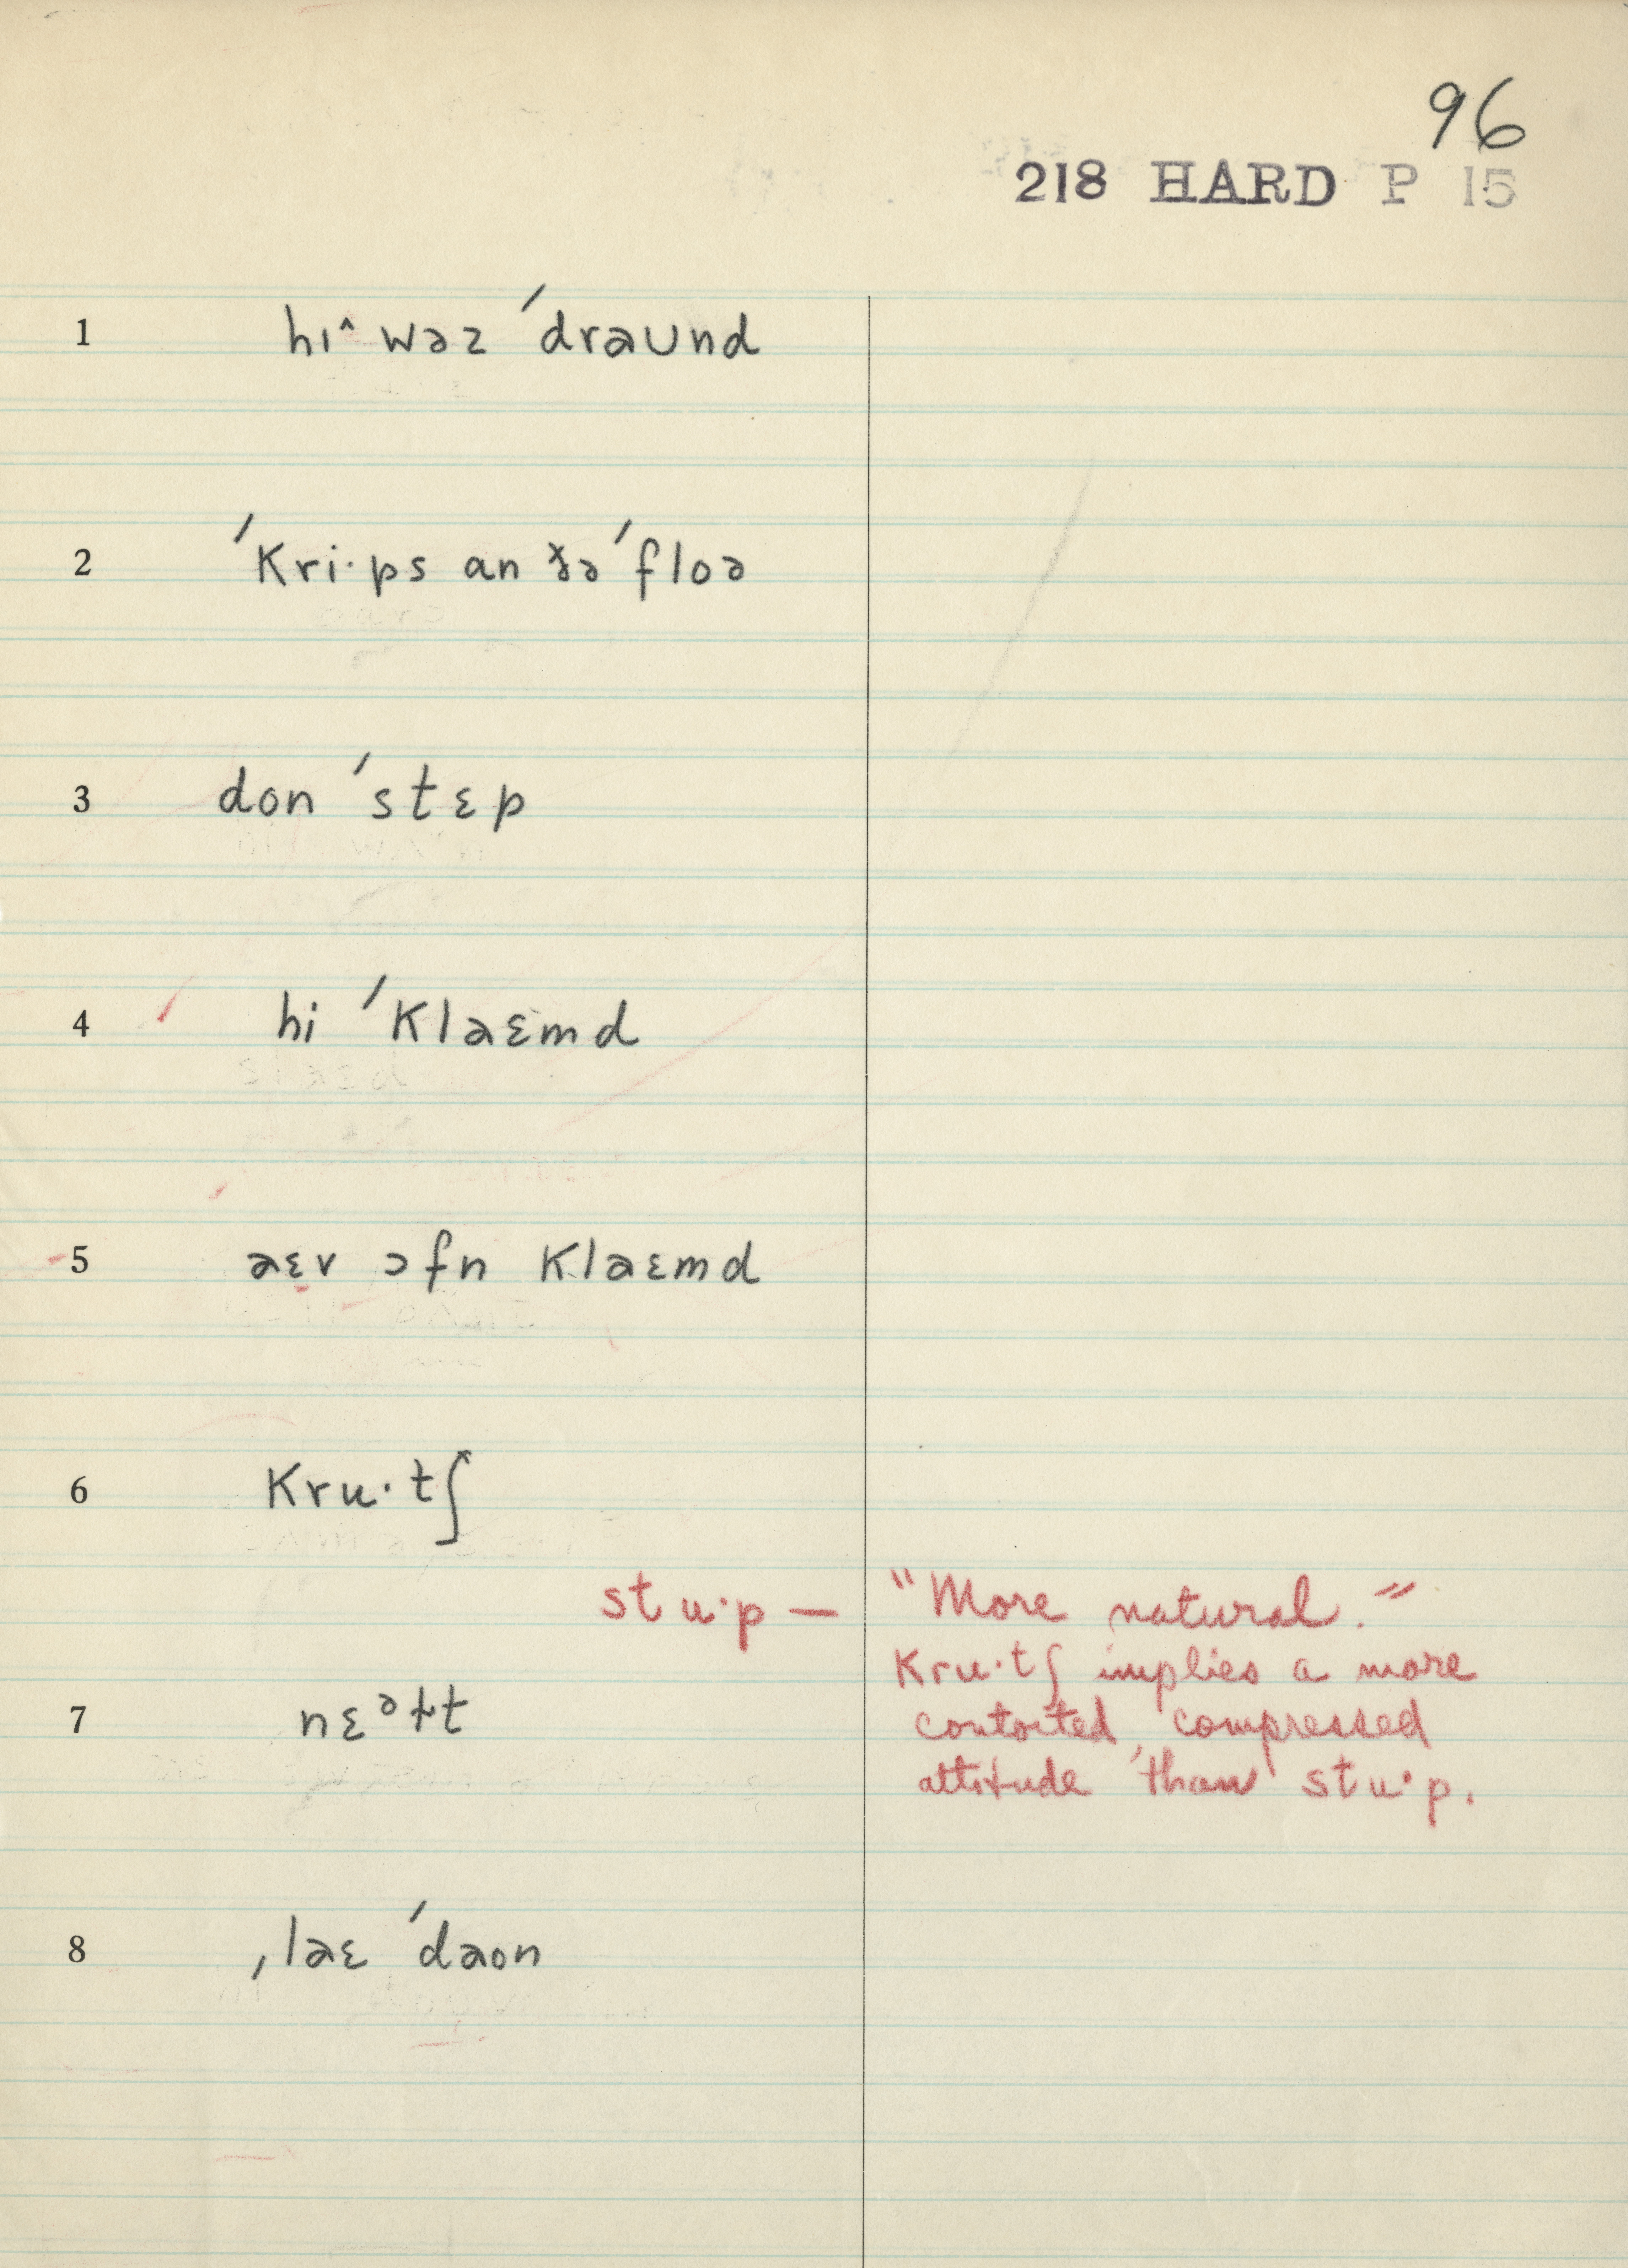 96
218 HARD P 15
1 hɪ^ wəz ˈdraʊnd
2 ˈkri·ps an ðə ˈfloə
3 don ˈstɛp
4 hi ˈklaɛmd
5 aɛv ɔfn klaɛmd
6 kru·tʃ
stu·p — "More natural."
kru·tʃ implies a more
7 nɛᵊɫt
contorted, compressed
attitude than stu·p.
8 ˌlaɛ ˈdaon